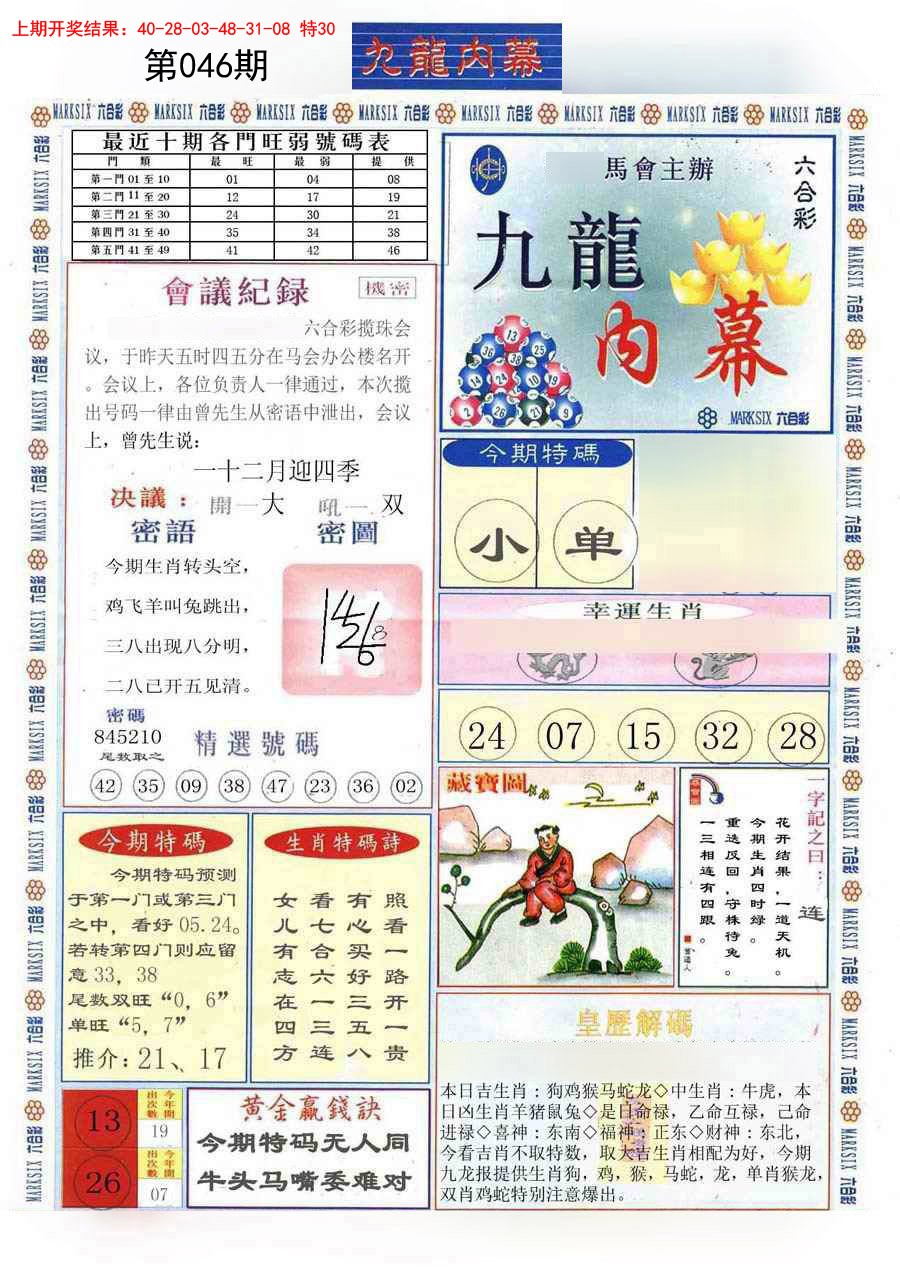 上期开奖结果：40-28-03-48-31-08 特30
第046期
九龍内幕
最近十期各門旺弱號碼表
門 類 最 旺 最 弱 提 供
第一門 01 至 10 01 04 08
第二門 11 至 20 12 17 19
第三門 21 至 30 24 30 21
第四門 31 至 40 35 34 38
第五門 41 至 49 41 42 46
會議紀録
機密
六合彩揽珠会
议，于昨天五时四五分在马会办公楼名开
。会议上，各位负责人一律通过，本次揽
出号码一律由曾先生从密语中泄出，会议
上，曾先生说：
一十二月迎四季
决議：開一大 吼一双
密語
密圖
今期生肖转头空，
鸡飞羊叫兔跳出，
三八出现八分明，
二八己开五见清。
密碼
845210
尾数取之
精選號碼
42 35 09 38 47 23 36 02
馬會主辦
六合彩
九龍
内幕
MARKSIX 六合彩
今期特碼
小 单
幸運生肖
24 07 15 32 28
藏寶圖
一字記之曰：连
花开结果，一道天机。
今期生肖四时绿。
重迭反回，守株待兔。
一三相连有四跟。
今期特碼
今期特码预测
于第一门或第三门
之中，看好 05.24。
若转第四门则应留
意 33，38
尾数双旺“0，6”
单旺“5，7”
推介：21、17
生肖特碼詩
女看有照
儿七心看
有合买一
志六好路
在一三开
四三五一
方连八贵
13
今年開出次數
19
26
今年開出次數
07
黄金赢錢訣
今期特码无人同
牛头马嘴委难对
皇歷解碼
本日吉生肖：狗鸡猴马蛇龙◇中生肖：牛虎，本
日凶生肖羊猪鼠兔◇是日命禄，乙命互禄，己命
进禄◇喜神：东南◇福神：正东◇财神：东北，
今看吉肖不取特数，取大吉生肖相配为好，今期
九龙报提供生肖狗，鸡，猴，马蛇，龙，单肖猴龙，
双肖鸡蛇特别注意爆出。